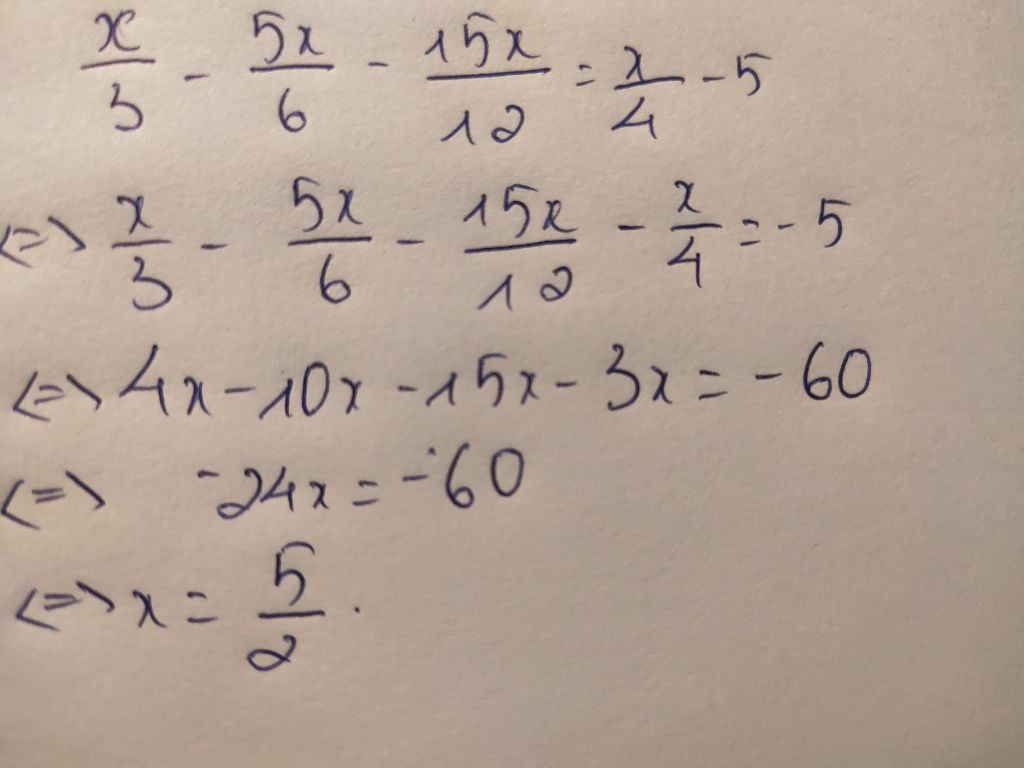 x/3 - 5x/6 - 15x/12 = x/4 - 5
<=> x/3 - 5x/6 - 15x/12 - x/4 = - 5
<=> 4x - 10x - 15x - 3x = - 60
<=> -24x = -60
<=> x = 5/2 .